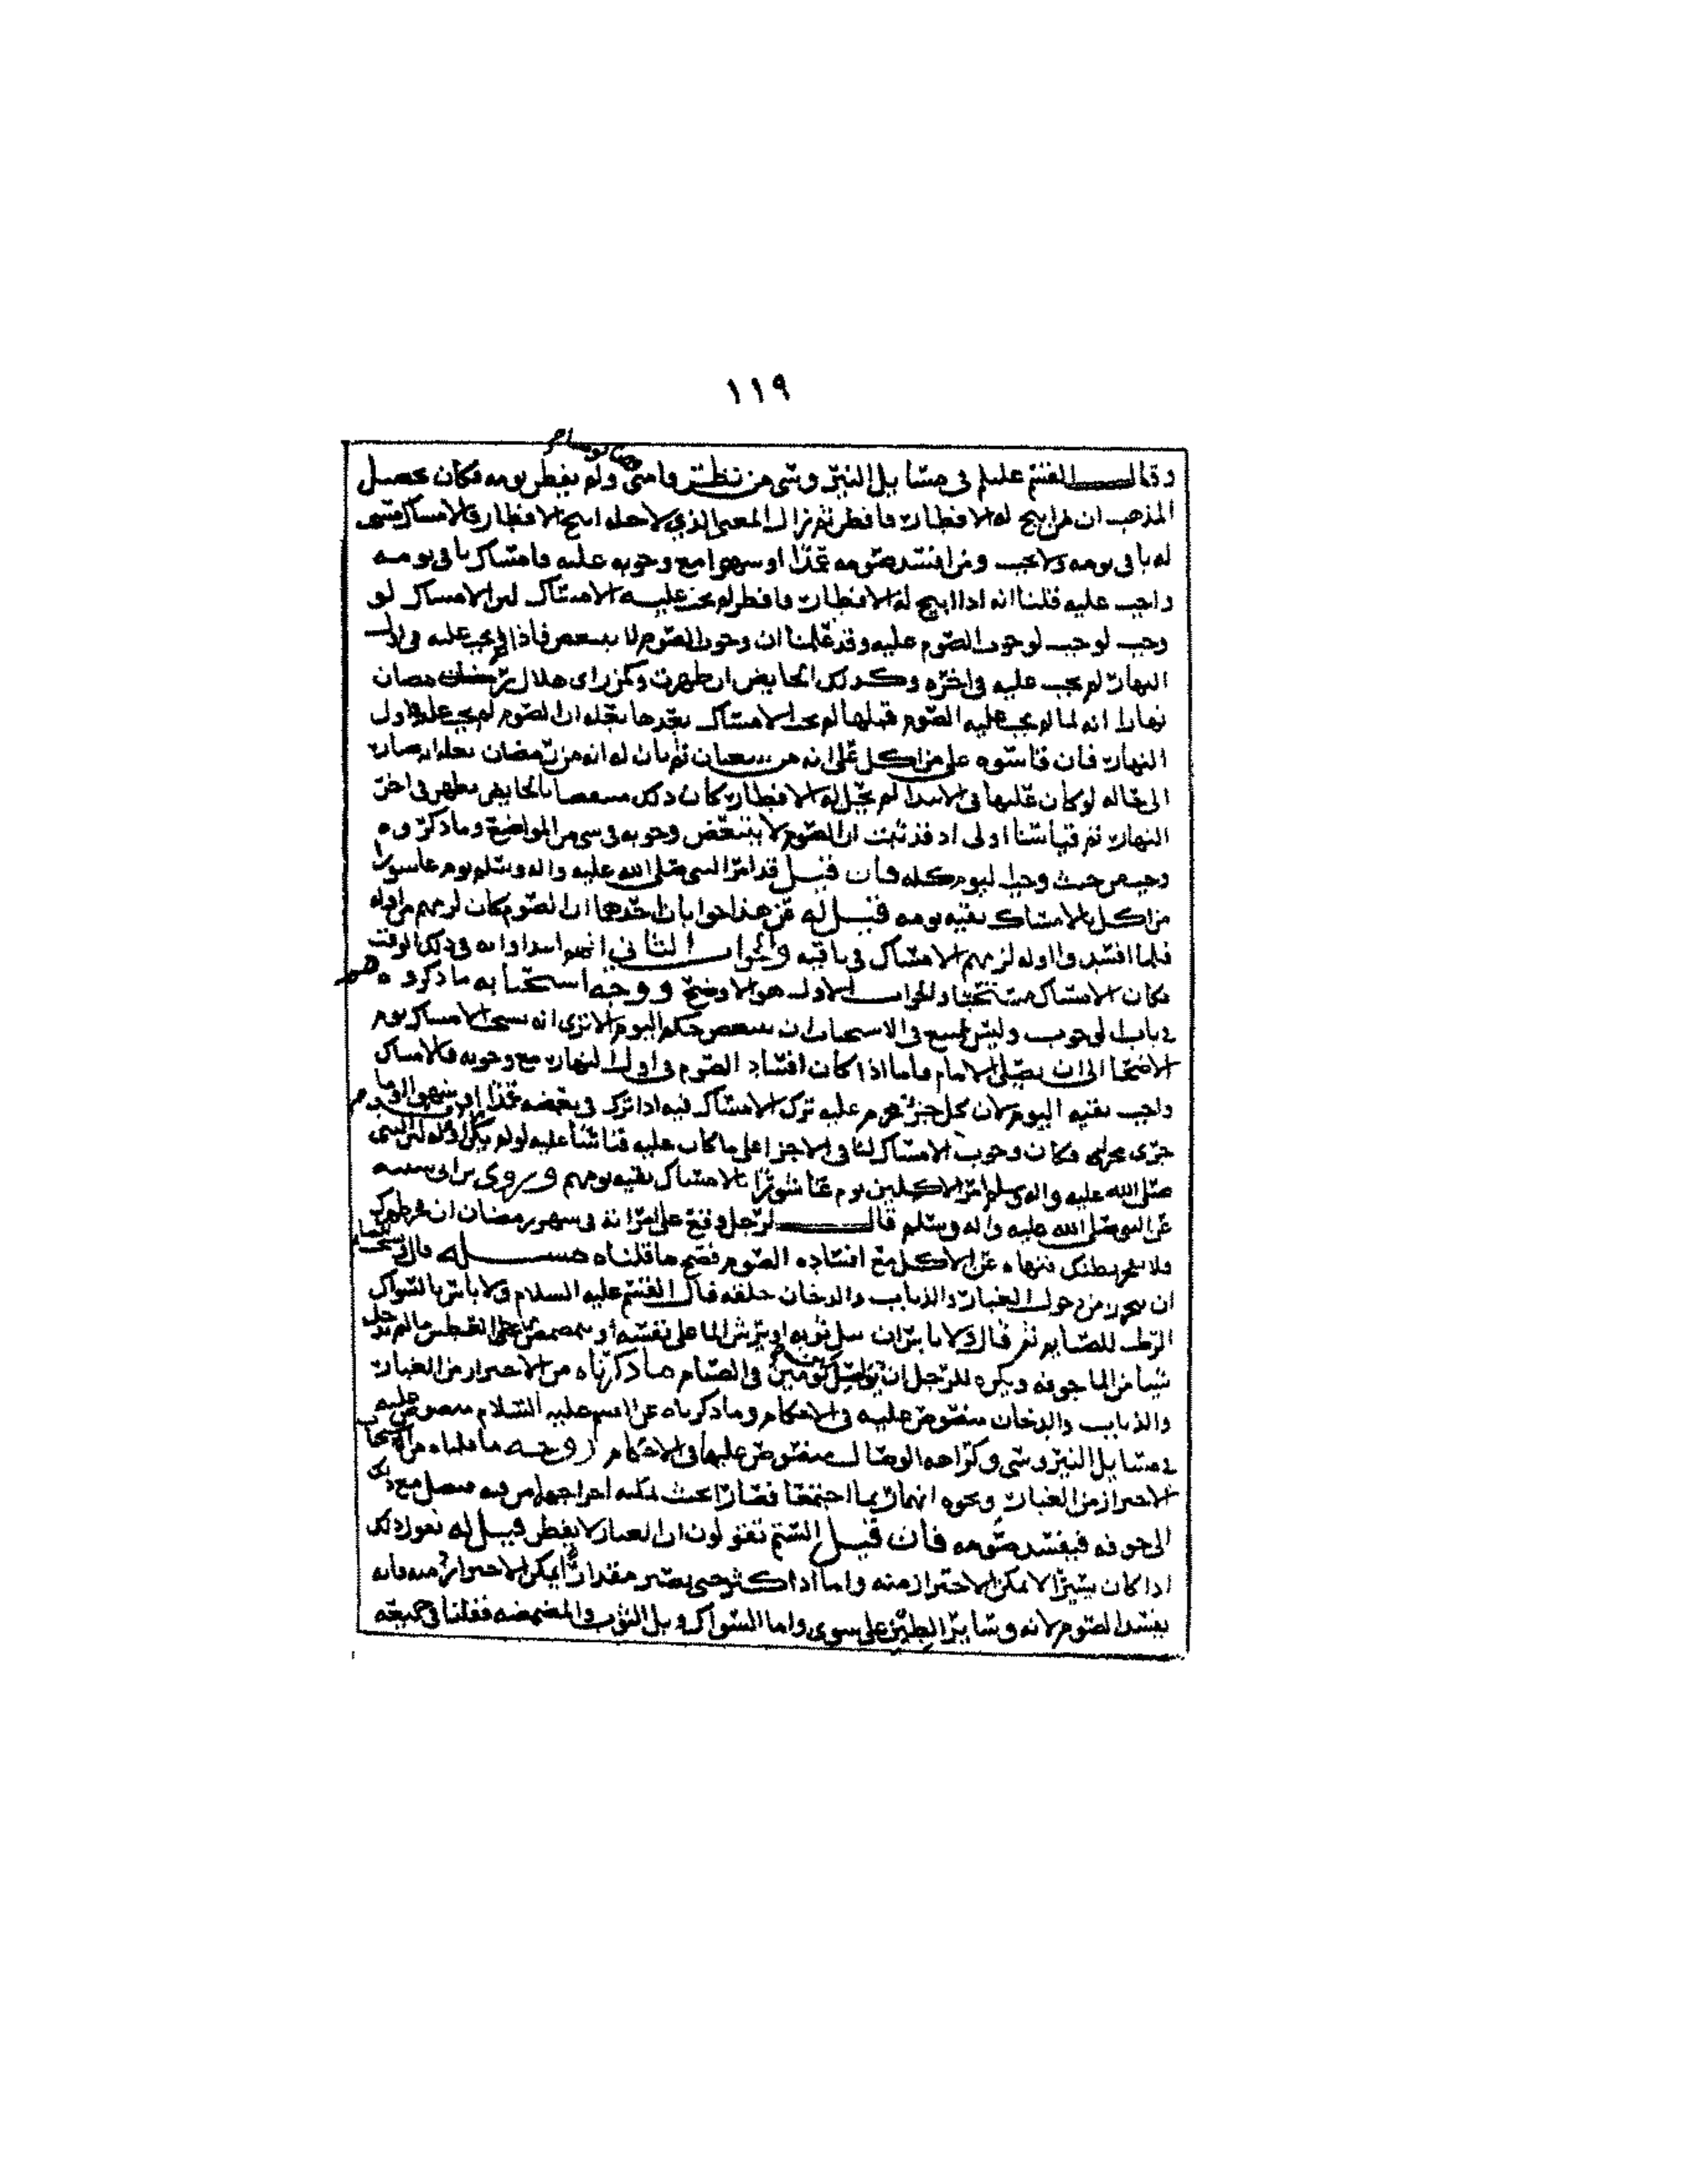 ١١٩
وقال القسم عليلم في مسايل النيروسي من نظر فامنى ولم يفطر يومه فكان تحصيل
المذهب ان من ابيح له الافطار فافطر ثم زال المعنى الذي لاجله ابيح الافطار فالامساك مستحب
له باقي يومه ولا يجب ومن افسد صومه عمدا او سهوا مع وجوبه عليه فامساك باقي يومه
واجب عليه قلنا انه اذا ابيح له الافطار فافطر لم يجب عليه الامساك لان الامساك لو
وجب لوجب لوجوب الصوم عليه وقد علمنا ان وجوب الصوم لا يتبعض فاذا لم يجب عليه في اول
النهار لم يجب عليه في اخره وكذلك الحايض ان طهرت وكمن راى هلال رمضان
نهارا انه لما لم يجب عليه الصوم قبلها لم يجب الامساك بعدها بعلة ان الصوم لم يجب عليه اول
النهار فان قاسوه على من اكل على انه من شعبان ثم بان له انه من رمضان بعلة انه صار
الى حاله لو كان عليها في الابتدا لم يحل له الافطار كان ذلك منتقضا بالحايض تطهر في اخر
النهار ثم قياسنا اولى اذ قد ثبت ان الصوم لا يتبعض وجوبه في شي من المواضع وما ذكروه
وجب من حيث وجب اليوم كله فان قيل قد امر النبي صلى الله عليه واله وسلم يوم عاشورا
من اكل بالامساك بقية يومه قيل له عن هذا جوابان احدها ان الصوم كان لزمهم من اوله
فلما افسدوا اوله لزمهم الامساك في باقيه والجواب الثاني انهم ابتدوا به في ذلك الوقت
فكان الامساك مستحبا والجواب الاول هو الاوضح ووجه استحبابه ما ذكروه
في باب الوجوب وليس يمتنع في الاستحباب ان يتبعض حكم اليوم الا ترى انه يستحب الامساك يوم
الاضحى الى ان يصلي الامام فاما اذا كان افساد الصوم في اول النهار مع وجوبه فالامساك
واجب بقية اليوم لان كل جزء محرم عليه ترك الامساك فيه اذا ترك في بعضه عمدا او سهوا او ما
جرى مجراه فكان وجوب الامساك لنا في الاجزا على ما كان عليه قياسا عليه لو لم يكن لان النبي
صلى الله عليه واله وسلم امر الاكلين يوم عاشورا بالامساك بقية يومهم وروى
عن النبي صلى الله عليه واله وسلم قال لرجل وقع على امراته في شهر رمضان ان فجر ظهرك
فلا يفجر بطنك فنهاه عن الاكل مع افساده الصوم فصح ما قلناه مسئلة قال ويستحب للصايم
ان يتحرز من دخول الغبار والذباب والدخان حلقه قال القسم عليه السلام ولا باس بالسواك
الرطب للصايم ثم قال ولا باس ان يبل ثوبه او يرش الما على نفسه او يتمضمض من العطش ما لم يدخل
شيا من الما جوفه ويكره للرجل ان يواصل بين يومين في الصيام ما ذكرناه من الاحتراز من الغبار
والذباب والدخان منصوص عليه في الاحكام وما ذكرناه عن القسم عليه السلام منصوص عليه
في مسايل النيروسي وكراهه الوصال منصوص عليها في الاحكام ووجه ما قلناه من استحباب
الاحتراز من الغبار ونحوه انهما ربما اجتمعا فصارا بحيث يمكنه اخراجهما من فيه فيصل مع ذلك
الى جوفه فيفسد صومه فان قيل الستم تقولون ان الغبار لا يفطر قيل له نقول ذلك
اذا كان يسيرا لا يمكن الاحتراز منه واما اذا كثر حتى يصير مقدارا يمكن الاحتراز منه فانه
يفسد الصوم لانه وساير الطين على سوى واما السواك وبل الثوب والمضمضه فقلنا في جميعه